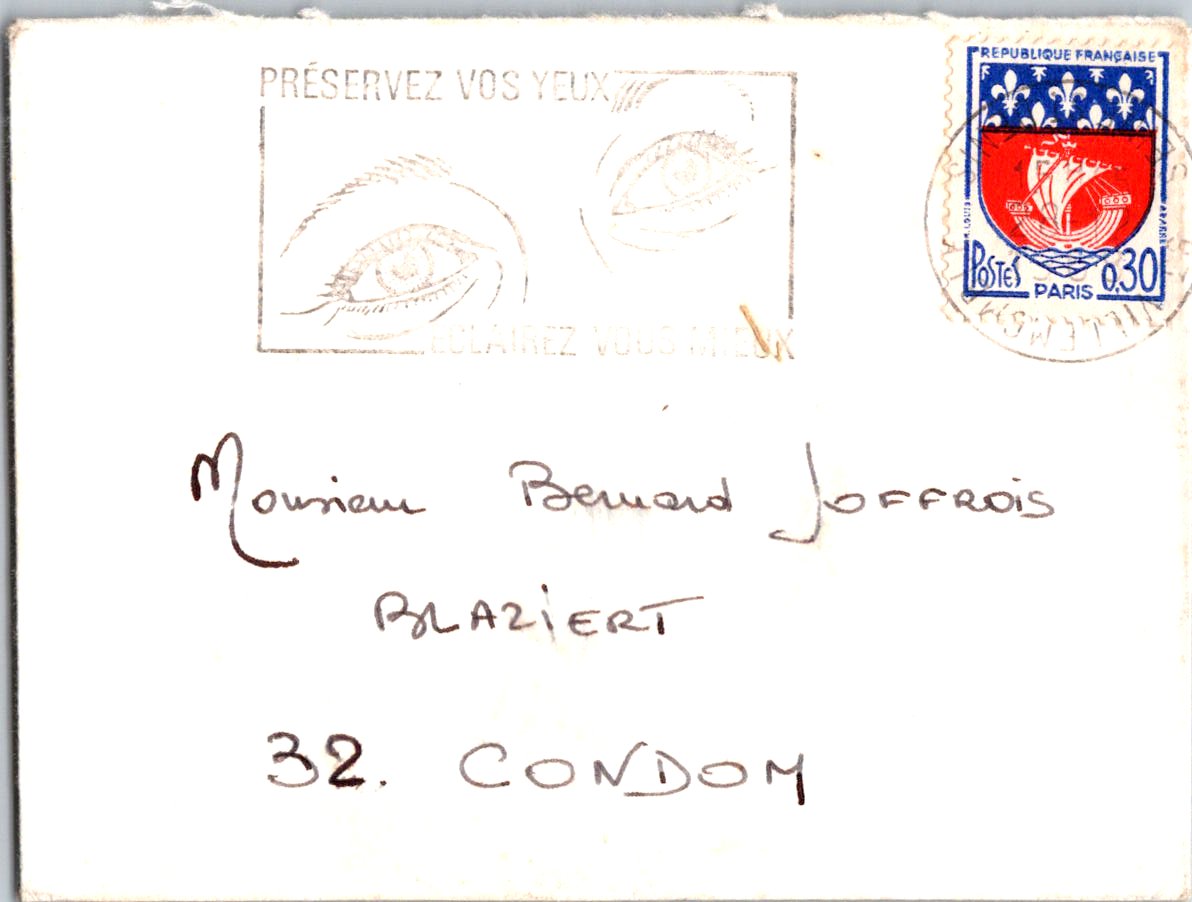 PRÉSERVEZ VOS YEUX
ECLAIREZ VOUS MIEUX
REPUBLIQUE FRANÇAISE
POSTES
0,30
PARIS
Monsieur Bernard JOFFROIS
BLAZIERT
32. CONDOM